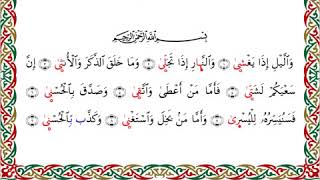 بِسْمِ اللَّهِ الرَّحْمَٰنِ الرَّحِيمِ
وَٱلَّيْلِ إِذَا يَغْشَىٰ ۝ وَٱلنَّهَارِ إِذَا تَجَلَّىٰ ۝ وَمَا خَلَقَ ٱلذَّكَرَ وَٱلْأُنثَىٰ ۝ إِنَّ
سَعْيَكُمْ لَشَتَّىٰ ۝ فَأَمَّا مَنْ أَعْطَىٰ وَٱتَّقَىٰ ۝ وَصَدَّقَ بِٱلْحُسْنَىٰ ۝
فَسَنُيَسِّرُهُۥ لِلْيُسْرَىٰ ۝ وَأَمَّا مَنۢ بَخِلَ وَٱسْتَغْنَىٰ ۝ وَكَذَّبَ بِٱلْحُسْنَىٰ ۝